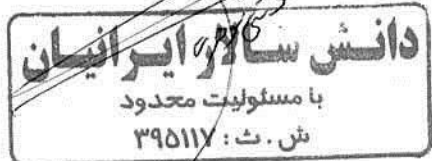 دانش سالار ایرانیان
با مسئولیت محدود
ش.ث: ۳۹۵۱۱۷